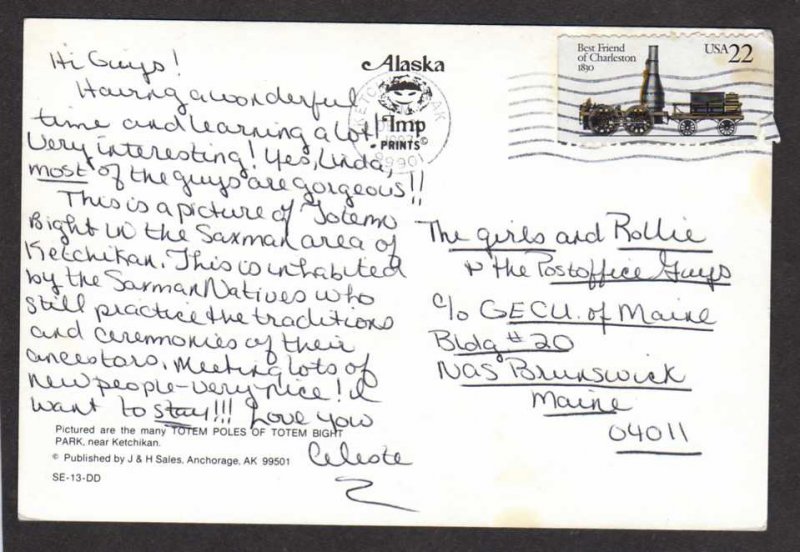 Hi Guys!
Having a wonderful
time and learning a lot!
Very interesting! Yes, Linda,
most of the guys are gorgeous!!
This is a picture of Totem
Bight in the Saxman area of
Ketchikan. This is inhabited
by the Saxman Natives who
still practice the traditions
and ceremonies of their
ancestors. Meeting lots of
new people - very nice! I
want to stay!!! Love you
Celeste
Pictured are the many TOTEM POLES OF TOTEM BIGHT
PARK, near Ketchikan.
© Published by J & H Sales, Anchorage, AK 99501
SE-13-DD
Alaska
Imp
PRINTS©
KETCHIKAN AK
99901
Best Friend
of Charleston
1830
USA 22
The girls and Rollie
& the Postoffice Guys
c/o GECU. of Maine
Bldg # 20
NAS Brunswick
Maine
04011